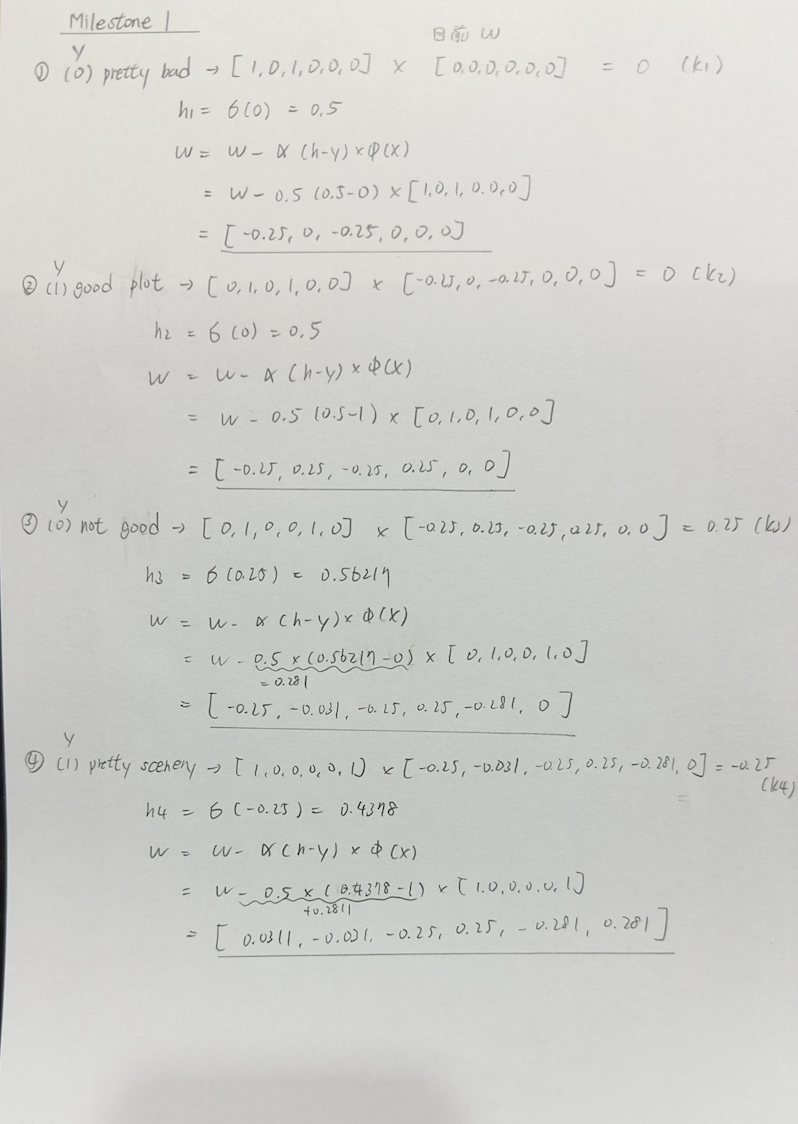 Milestone 1
目前 W
Y
① (0) pretty bad → [1,0,1,0,0,0] × [0,0,0,0,0,0] = 0 (k1)
h1 = σ(0) = 0.5
W = W - α (h-y) × φ(X)
= W - 0.5 (0.5-0) × [1,0,1,0,0,0]
= [-0.25, 0, -0.25, 0, 0, 0]
Y
② (1) good plot → [0,1,0,1,0,0] × [-0.25,0,-0.25,0,0,0] = 0 (k2)
h2 = σ(0) = 0.5
W = W - α (h-y) × φ(X)
= W - 0.5 (0.5-1) × [0,1,0,1,0,0]
= [-0.25, 0.25, -0.25, 0.25, 0, 0]
Y
③ (0) not good → [0,1,0,0,1,0] × [-0.25, 0.25, -0.25, 0.25, 0, 0] = 0.25 (k3)
h3 = σ(0.25) = 0.56217
W = W - α (h-y) × φ(X)
= W - 0.5 × (0.56217-0) × [0,1,0,0,1,0]
= 0.281
= [-0.25, -0.031, -0.25, 0.25, -0.281, 0]
Y
④ (1) pretty scenery → [1,0,0,0,0,1] × [-0.25, -0.031, -0.25, 0.25, -0.281, 0] = -0.25
(k4)
h4 = σ(-0.25) = 0.4378
W = W - α (h-y) × φ(X)
= W - 0.5 × (0.4378-1) × [1,0,0,0,0,1]
+0.2811
= [0.0311, -0.031, -0.25, 0.25, -0.281, 0.281]